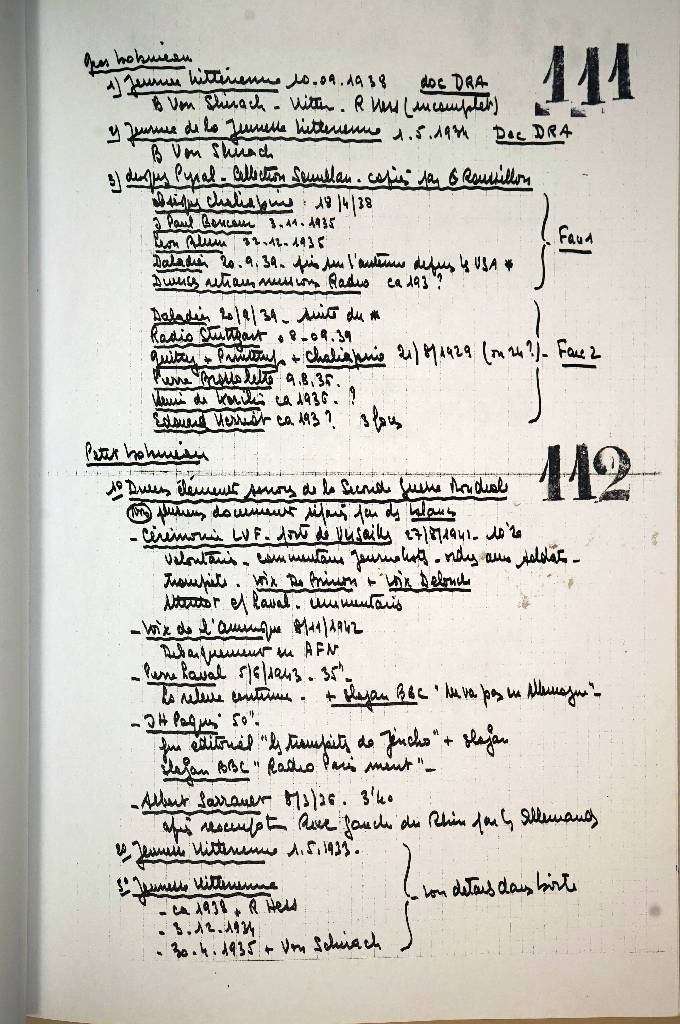 111
Gros Nobineau
1) Jeunesse hitlerienne 10.09.1938 doc DRA
B Von Shirach - Hitler - R Hess (incomplet)
2) Journée de la Jeunesse hitlerienne 1.5.1934 Doc DRA
B Von Shirach
3) disques Pyral - Collection - copiés par G Roussillon
obsèques Chaliapine : 18/4/38
J Paul Boncour 3.11.1935
Leon Blum 22.12.1935
Daladier 20.9.39 - pris sur l'antenne depuis les USA *
Diverses retransmissions Radio ca 193?
Face 1
Daladier 20/9/39 - suite du *
Radio Stuttgart 8-09.39
Guitry + Printemps + Chaliapine 21/8/1929 (ou 24?) - Face 2
Pierre Brossolette 9.8.36.
Henri de Kerillis ca 1936. ?
Edouard Herriot ca 193? 3 faces
Petit Nobineau
112
1° Divers élément sonores de la Seconde Guerre Mondiale
plusieurs document séparés par des blancs
- Cérémonie LVF - porte de Versailles 27/8/1941 - 10'20
volontaires - commentaires journalistes - ordres aux soldats -
trompette - voix De Brinon + voix Deloncle
Attentat c/ Laval - commentaires
- Voix de l'Amerique 8/11/1942
Debarquement en AFN
- Pierre Laval 5/6/1943 - 35"
La releve continue - + slogan BBC "Ne va pas en Allemagne" -
- JH Paquis 50"-
fin éditorial "les trompettes de Jéricho" + slogan
slogan BBC "Radio Paris ment" -
- Albert Sarraut 8/3/36 - 3'40
après reoccupation Rive Gauche du Rhin par les Allemands
2° Jeunesse Hitlerienne 1.5.1933 -
3° Jeunesse Hitlerienne
- voir details dans boite
- ca 1938 + R Hess
- 3.12.1934
- 30.4.1935 + Von Schirach